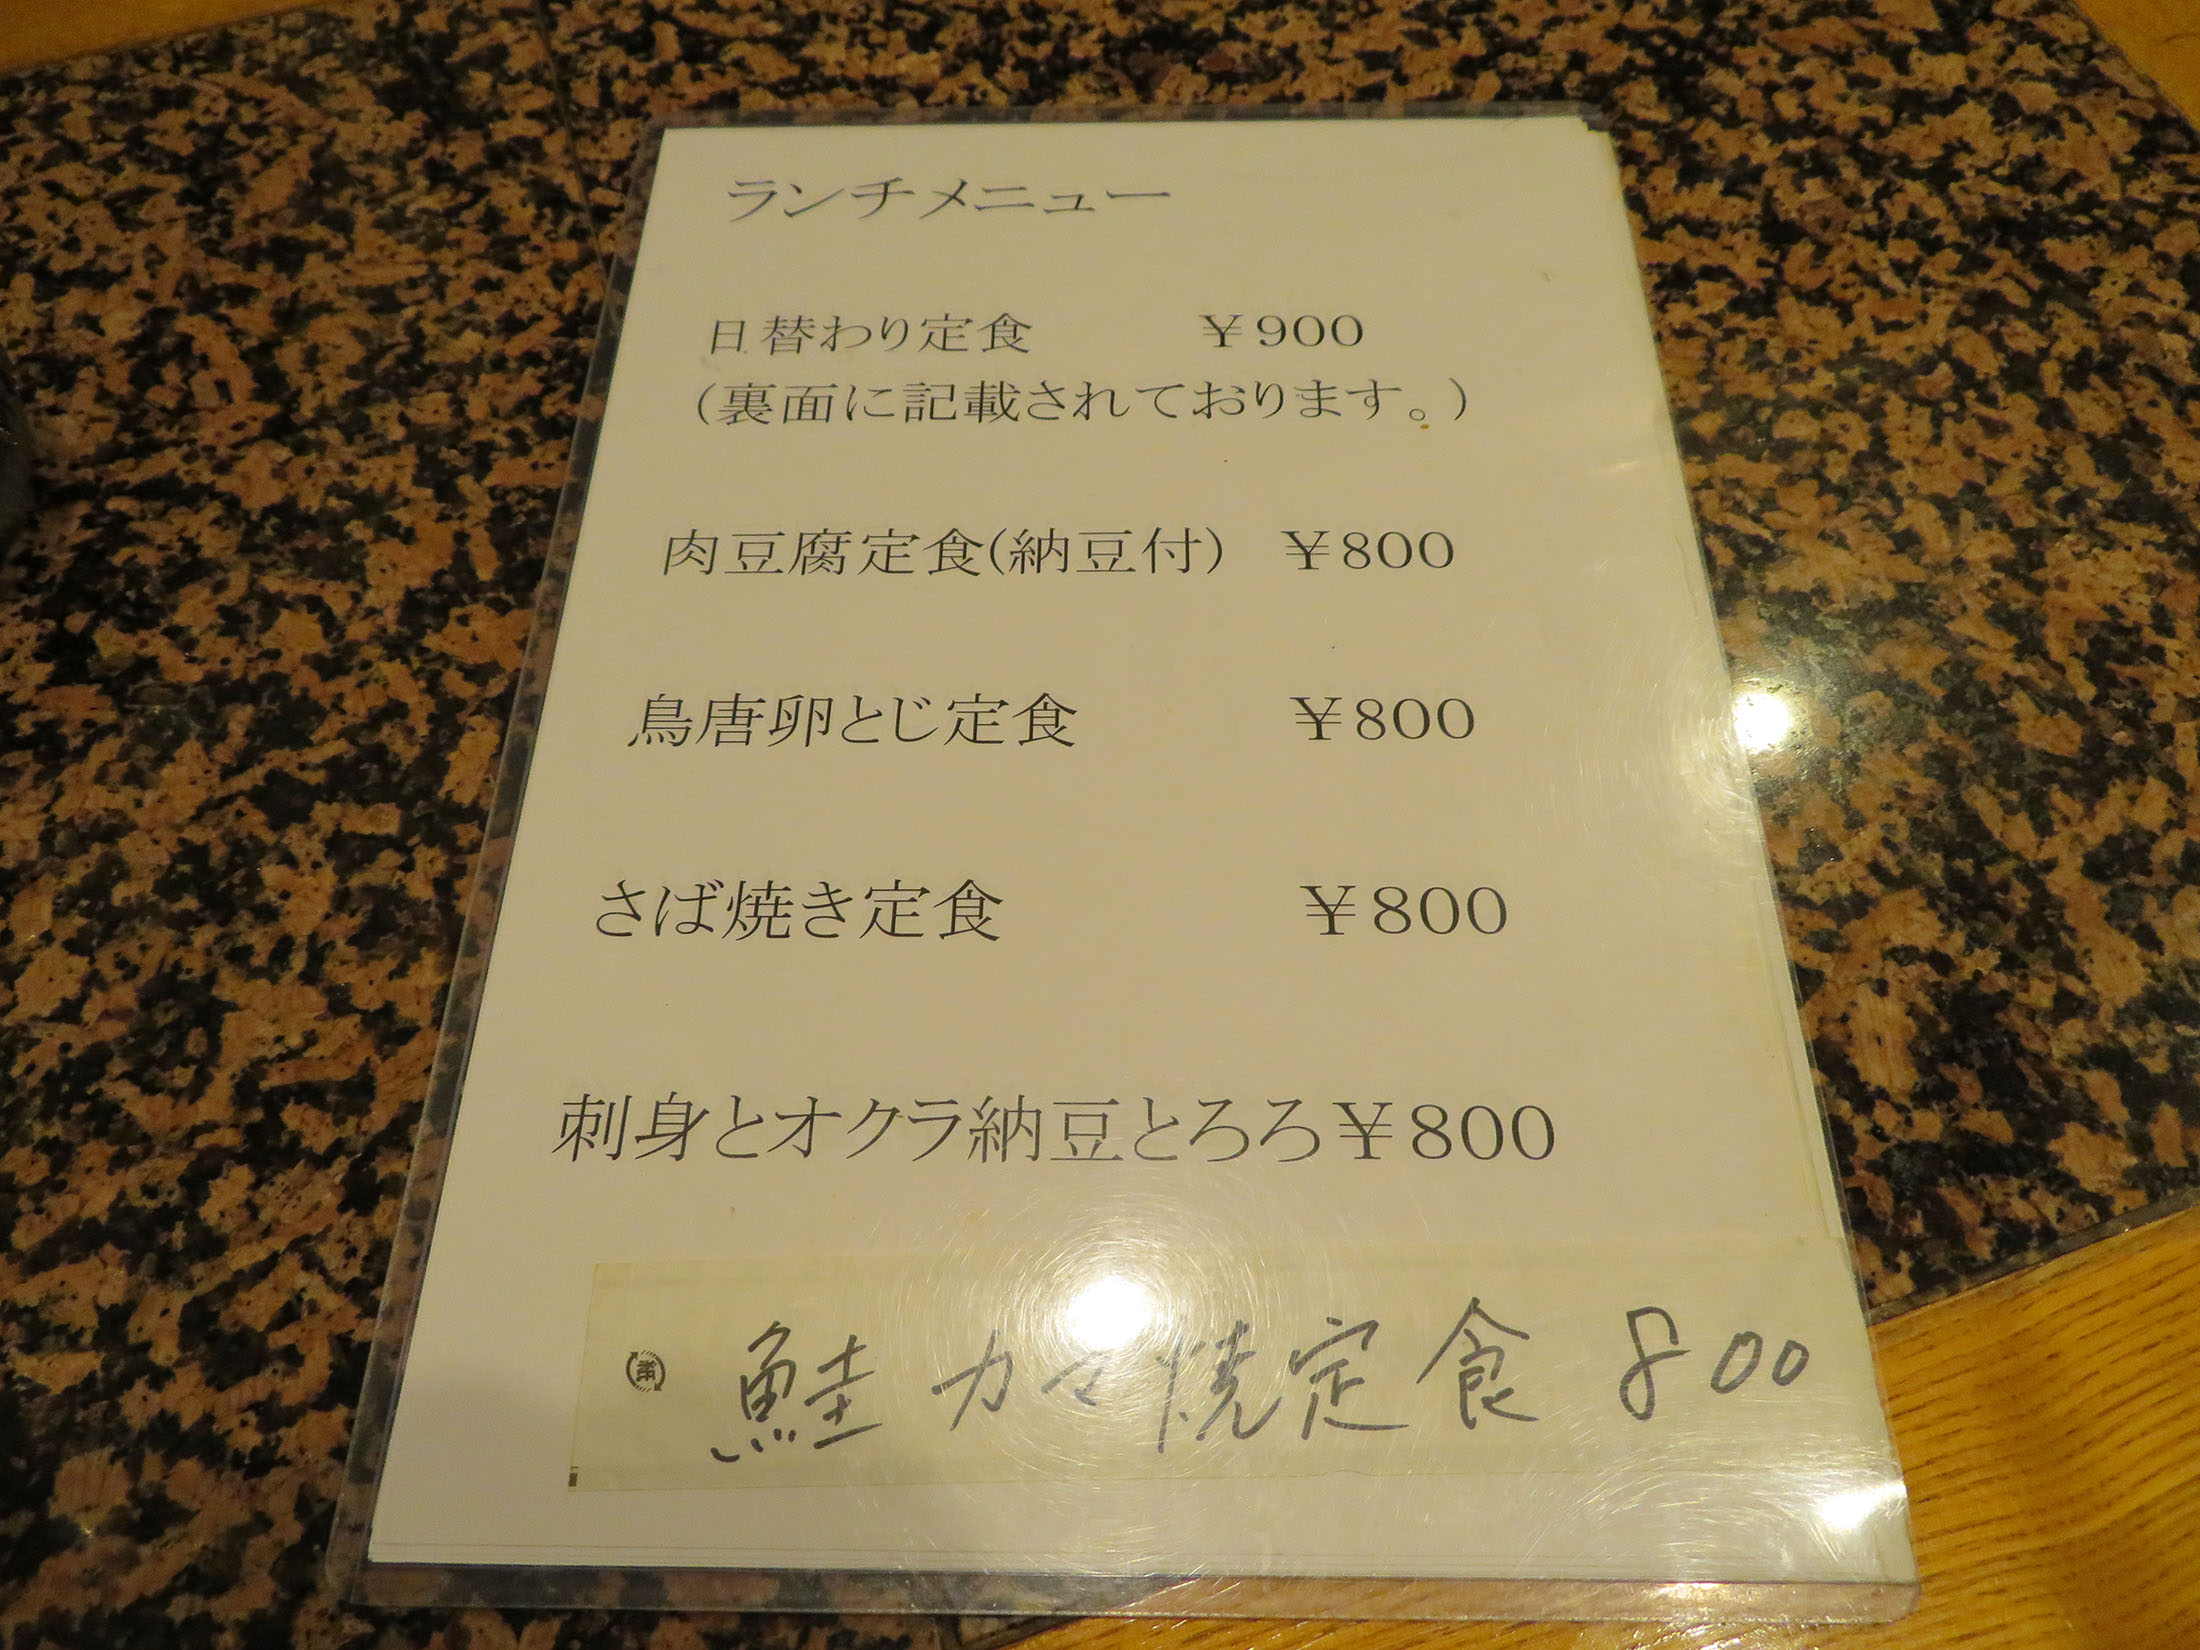 ランチメニュー
日替わり定食　　　￥900
（裏面に記載されております。）
肉豆腐定食(納豆付)　￥800
鳥唐卵とじ定食　　　￥800
さば焼き定食　　　￥800
刺身とオクラ納豆とろろ￥800
紙
鮭カマ焼定食 800